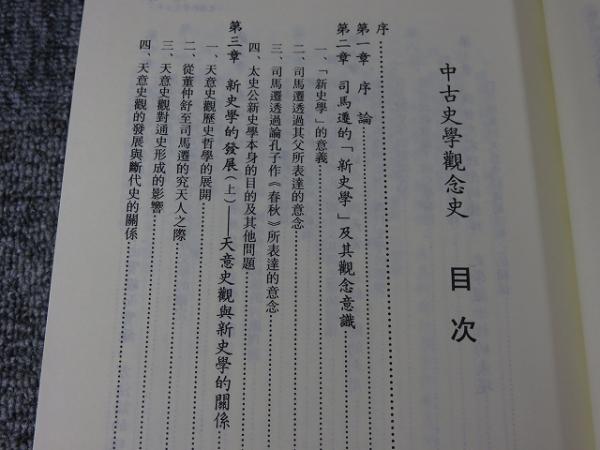 中古史學觀念史　目次
序
第一章　序　論
第二章　司馬遷的「新史學」及其觀念意識
一、「新史學」的意義
二、司馬遷透過其父所表達的意念
三、司馬遷透過論孔子作《春秋》所表達的意念
四、太史公新史學本身的目的及其他問題
第三章　新史學的發展（上）——天意史觀與新史學的關係
一、天意史觀歷史哲學的展開
二、從董仲舒至司馬遷的究天人之際
三、天意史觀對通史形成的影響
四、天意史觀的發展與斷代史的關係